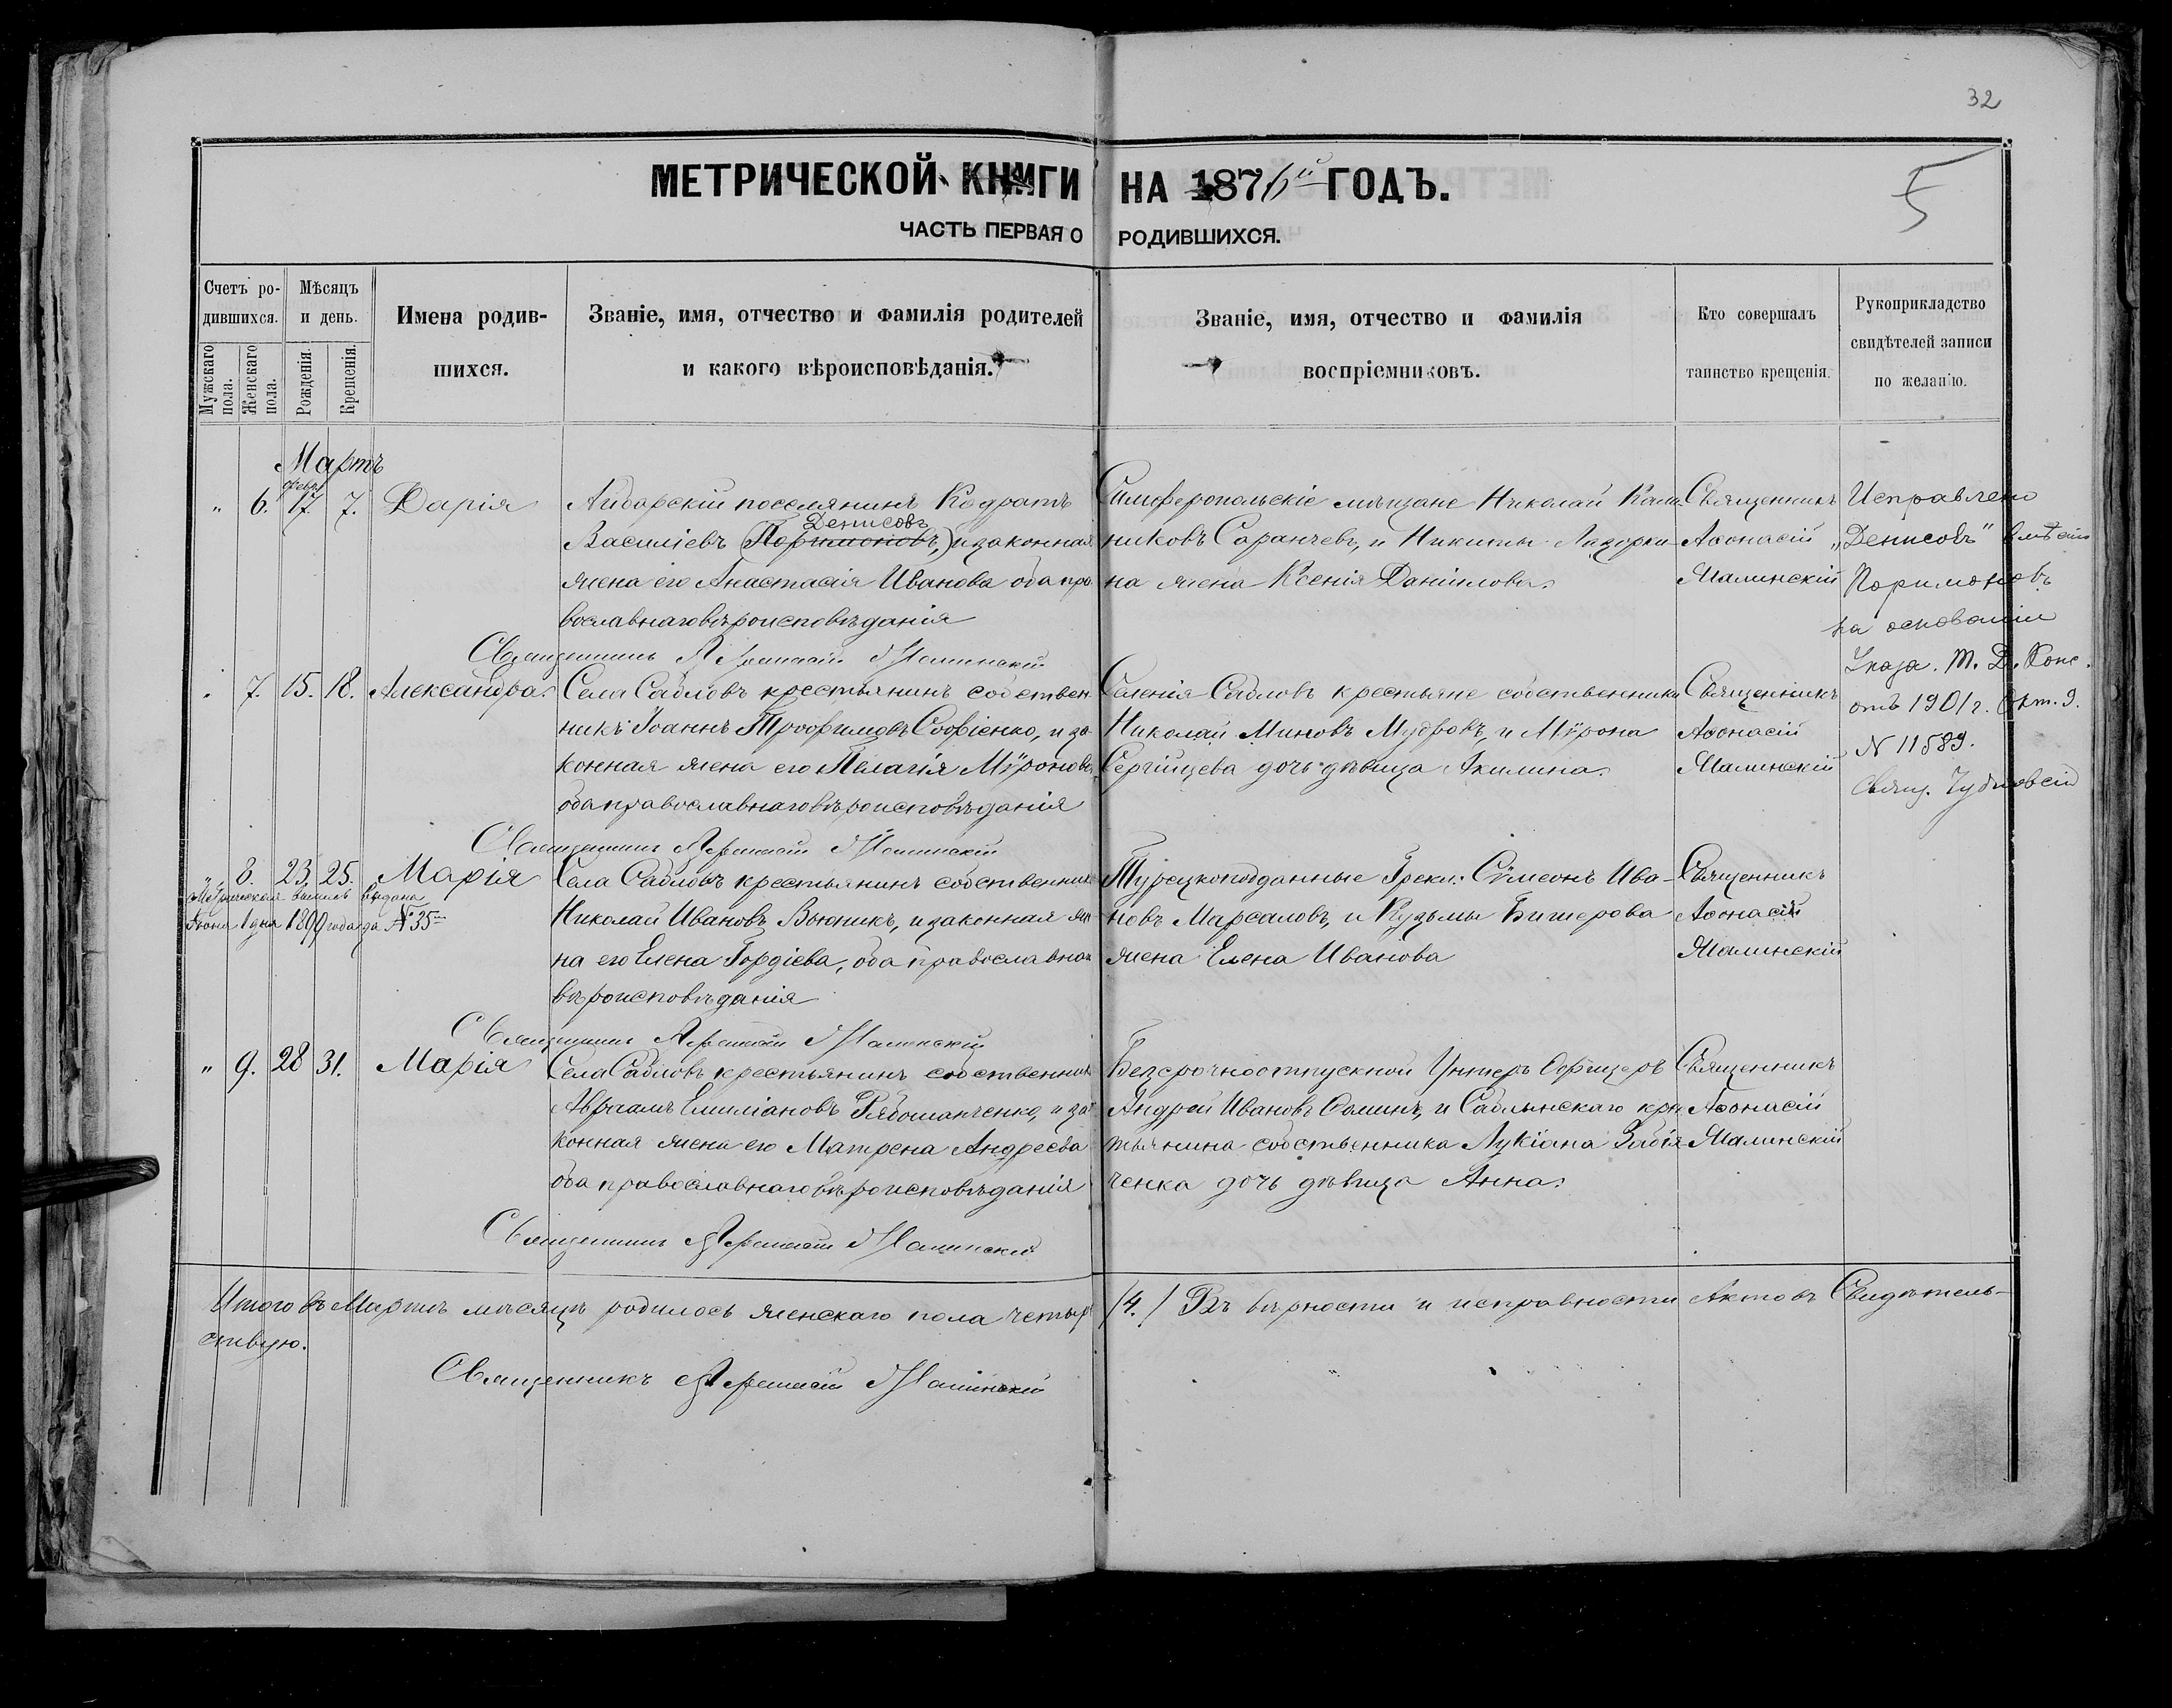 32
5
МЕТРИЧЕСКОЙ КНИГИ НА 1876й ГОДЪ.
ЧАСТЬ ПЕРВАЯ О РОДИВШИХСЯ.
Счетъ ро-
дившихся.
Мужскаго пола.
Женскаго пола.
Мѣсяцъ
и день.
Рожденія.
Крещенія.
Имена родив-
шихся.
Званіе, имя, отчество и фамилія родителей
и какого вѣроисповѣданія.
Званіе, имя, отчество и фамилія
воспріемниковъ.
Кто совершалъ
таинство крещенія.
Рукоприкладство
свидѣтелей записи
по желанію.
Мартъ
февр.
„ 6. 17. 7. Дарія
Айдарскій поселянинъ Кодратъ
Денисовъ
Василіевъ (Поримоновъ,) и законная
жена его Анастасія Иванова оба пра
вославнаго вѣроисповѣданія
Симферопольскіе мѣщане Николай Кали-
никовъ Саранчевъ, и Никиты
на жена Ксенія Даніилова.
Священникъ
Аѳонасій
Малинскій
Исправлено
„Денисовъ" вмѣсто
Поримоновъ
на основаніи
Указа. Т. Д. Конс.
отъ 1901 г. Окт. 9.
N 11589.
Свящ. Чудновскій
Священникъ Аѳонасій Малинскій
. 7. 15. 18. Александра.
Села Сабловъ крестьянинъ собствен
никъ Іоаннъ Трофимовъ Софіенко, и за
конная жена его Пелагія Мѵронова,
оба православнаго вѣроисповѣданія
Селенія Сабловъ крестьяне собственники
Николай Миновъ Мудровъ, и Мѵрона
Сергійцева дочь дѣвица Акилина.
Священникъ
Аѳонасій
Малинскій
Священникъ Аѳонасій Малинскій
„ 8. 23. 25. Марія
Метрическая выпись выдана
Іюня 1 дня 1899 года за № 35
Села Сабловъ крестьянинъ собственникъ
Николай Ивановъ Вьюникъ, и законная же
на его Елена Гордіева, оба православнаго
вѣроисповѣданія
Турецкоподданные Греки: Сѵмеонъ Ива-
новъ Марсаловъ, и Кузьмы Бишерова
жена Елена Иванова
Священникъ
Аѳонасій
Малинскій
Священникъ Аѳонасій Малинскій
„ 9. 28 31. Марія
Села Сабловъ крестьянинъ собственникъ
Авраамъ Емиліановъ Рябошапченко, и за-
конная жена его Матрена Андреева
оба православнаго вѣроисповѣданія
Безсрочноотпускной Унтеръ Офицеръ
Андрей Ивановъ Ѳоминъ, и Саблынскаго крес
тьянина собственника Лукіана Забія
ченка дочь дѣвица Анна.
Священникъ
Аѳонасій
Малинскій
Священникъ Аѳонасій Малинскій
Итого въ Мартѣ мѣсяцѣ родилось женскаго пола четыре /4./ Въ вѣрности и исправности Актовъ Свидѣтель-
ствую.
Священникъ Аѳонасій Малинскій